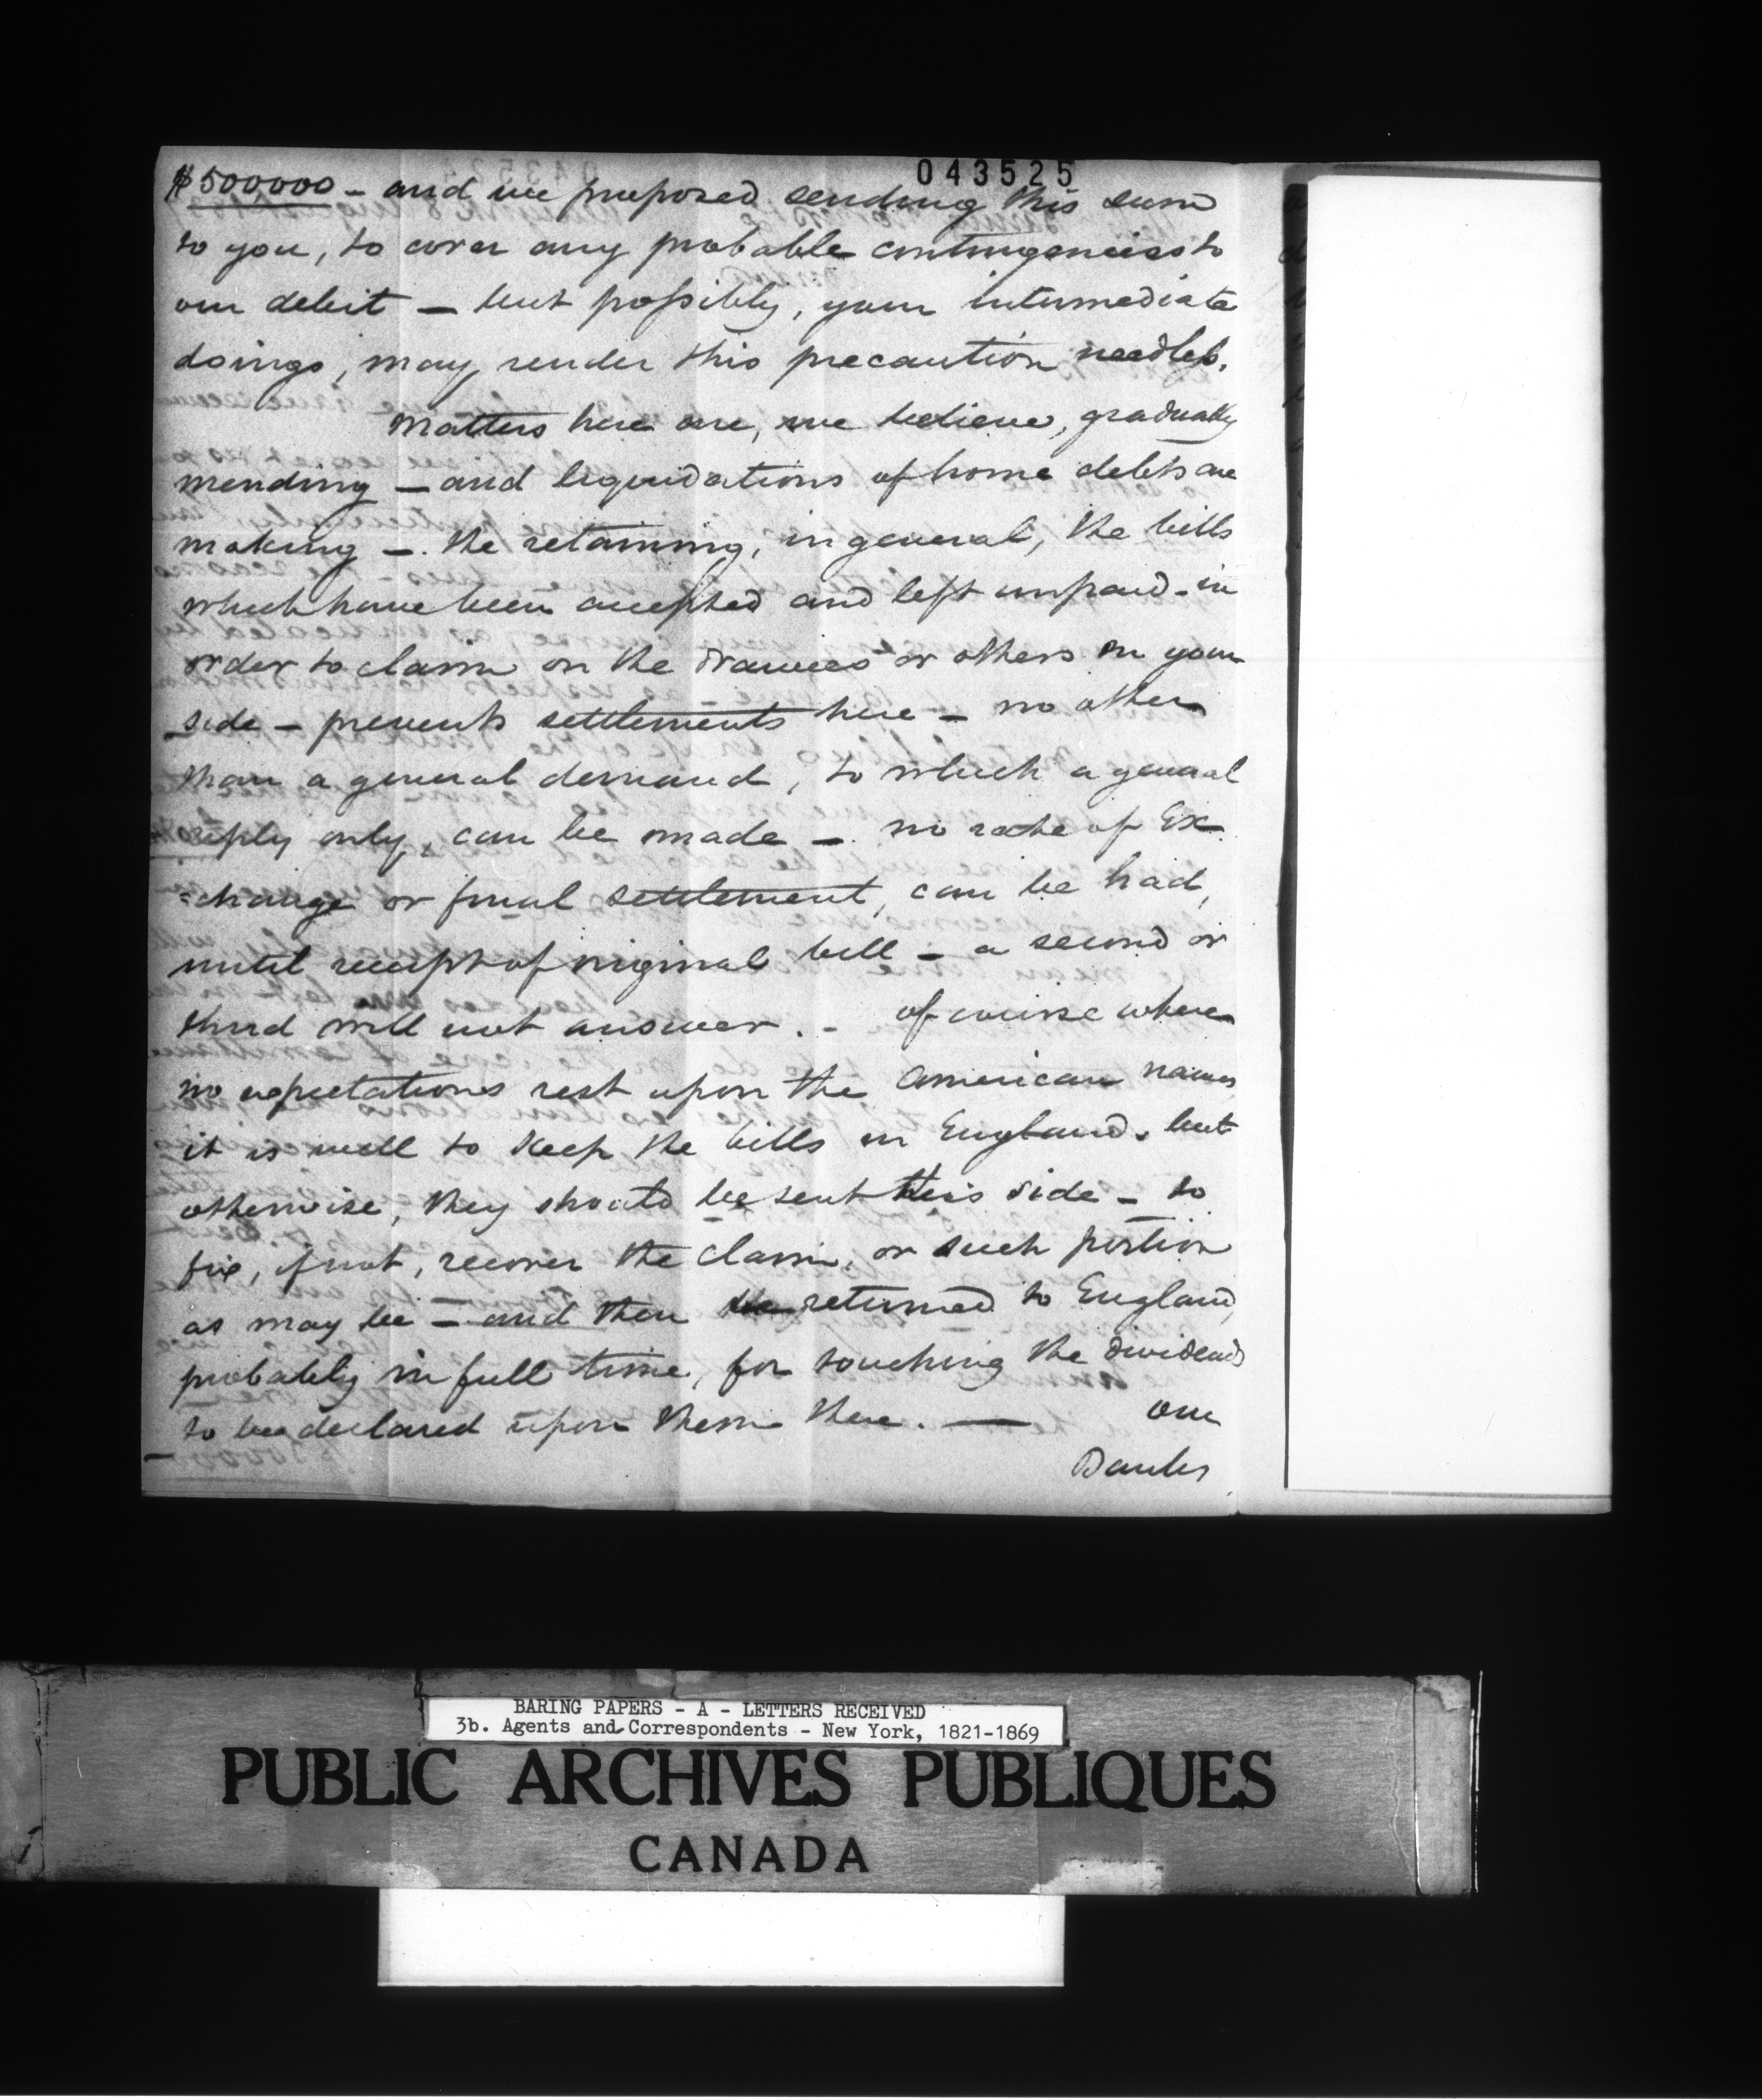 043525
$500000 - and we proposed sending this sum
to you, to cover any probable contingencies to
our debit - but possibly, your intermediate
doings, may render this precaution needless.
Matters here are, we believe, gradually
mending - and liquidations of home debts are
making -. the retaining, in general, the bills
which have been accepted and left unpaid - in
order to claim on the drawees or others on your
side - prevents settlements here - no other
than a general demand, to which a general
reply only, can be made - no rate of Ex
=change or final settlement, can be had,
until receipt of original bill - a second or
third will not answer. - of course where
no expectations rest upon the American names
it is well to keep the bills in England. but
otherwise, they should be sent this side - to
fix, if not, recover the claim, or such portion
as may be - and then returned to England,
probably in full time, for touching the dividends
to be declared upon them there. — our
Banks
BARING PAPERS - A - LETTERS RECEIVED
3b. Agents and Correspondents - New York, 1821-1869
PUBLIC ARCHIVES PUBLIQUES
CANADA